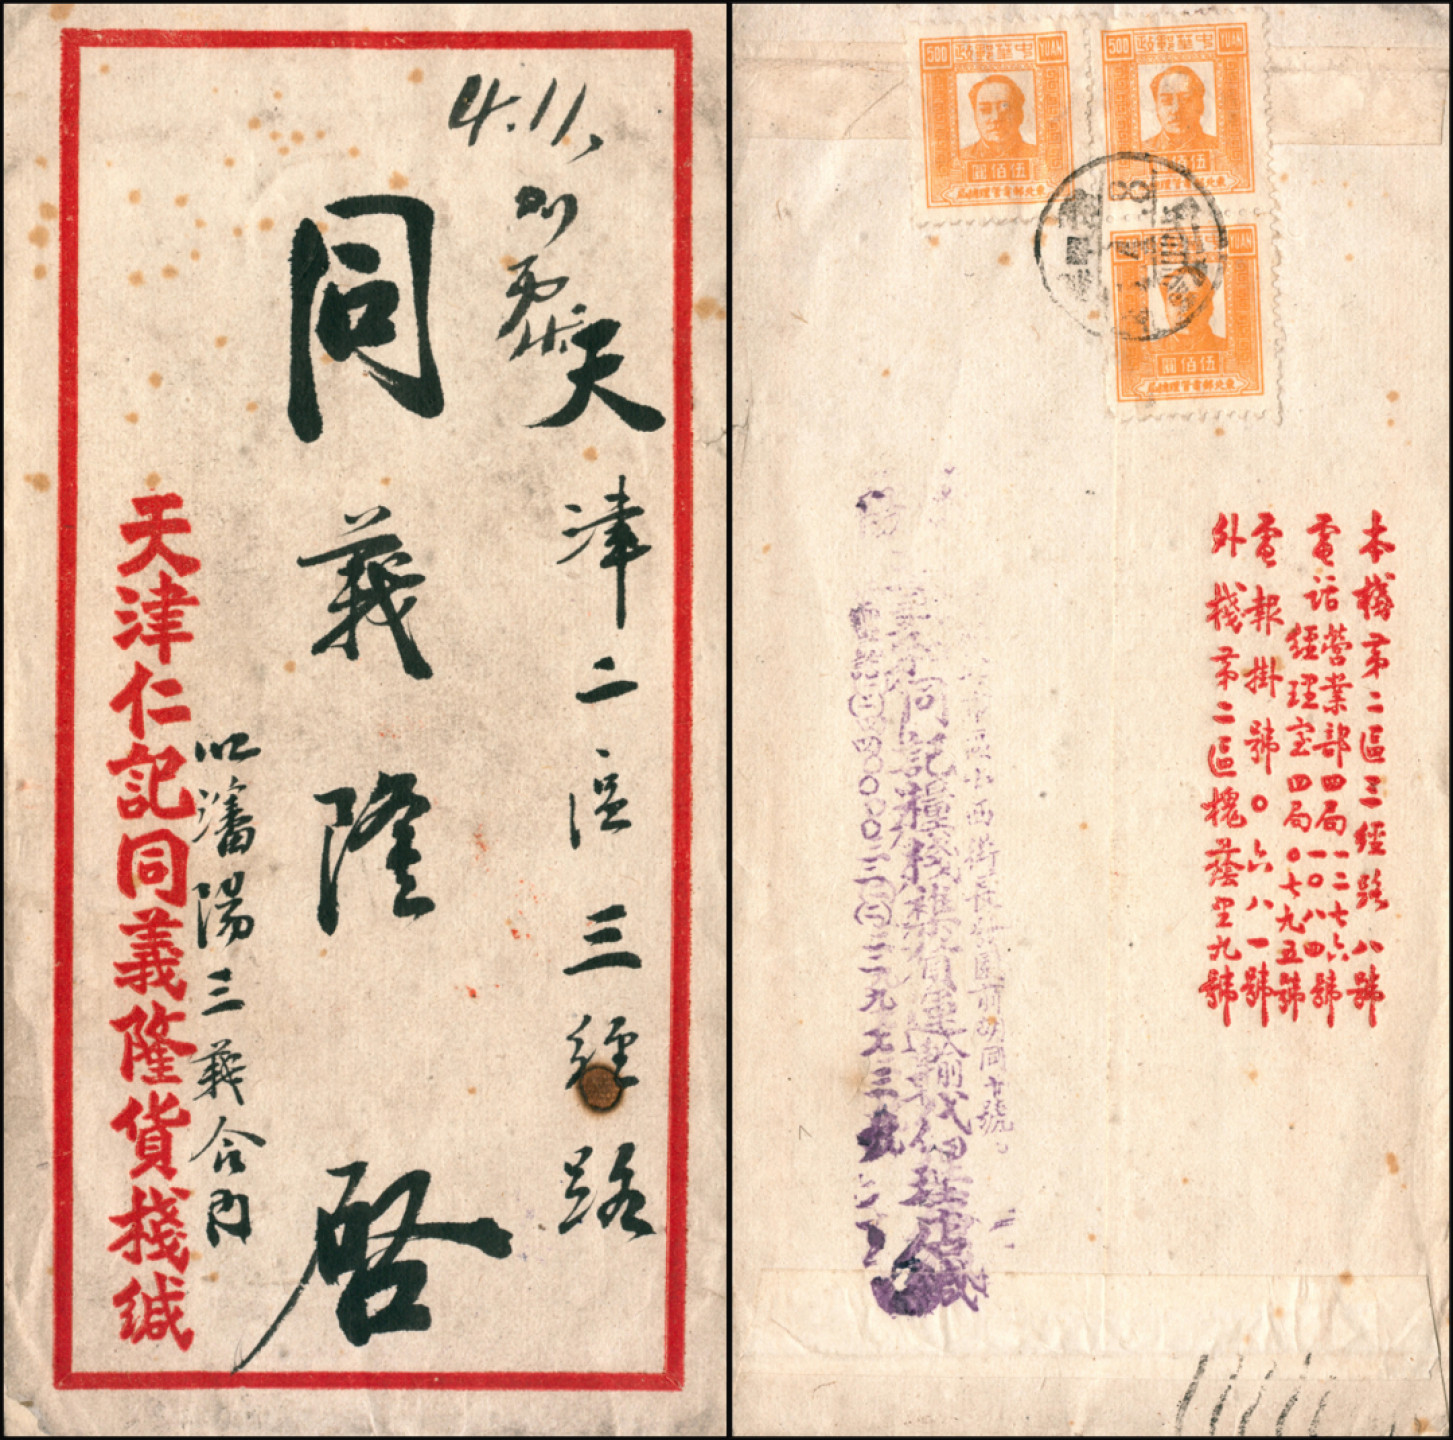 4.11.
天津二區三經路
同義隆 啓
瀋陽三義合內
天津仁記同義隆貨棧緘
500 中華郵政 YUAN
伍佰圓
東北郵電管理總局
500 中華郵政 YUAN
伍佰圓
東北郵電管理總局
YUAN
伍佰圓
東北郵電管理總局
8
本棧第二區三經路八號
電話營業部四局一二七六號
一〇八四號
經理室四局〇七九五號
電報掛號〇六八一號
外棧第二區槐蔭里九號
西街長 園前胡同 號
同記糧棧 貨運輸代理店緘